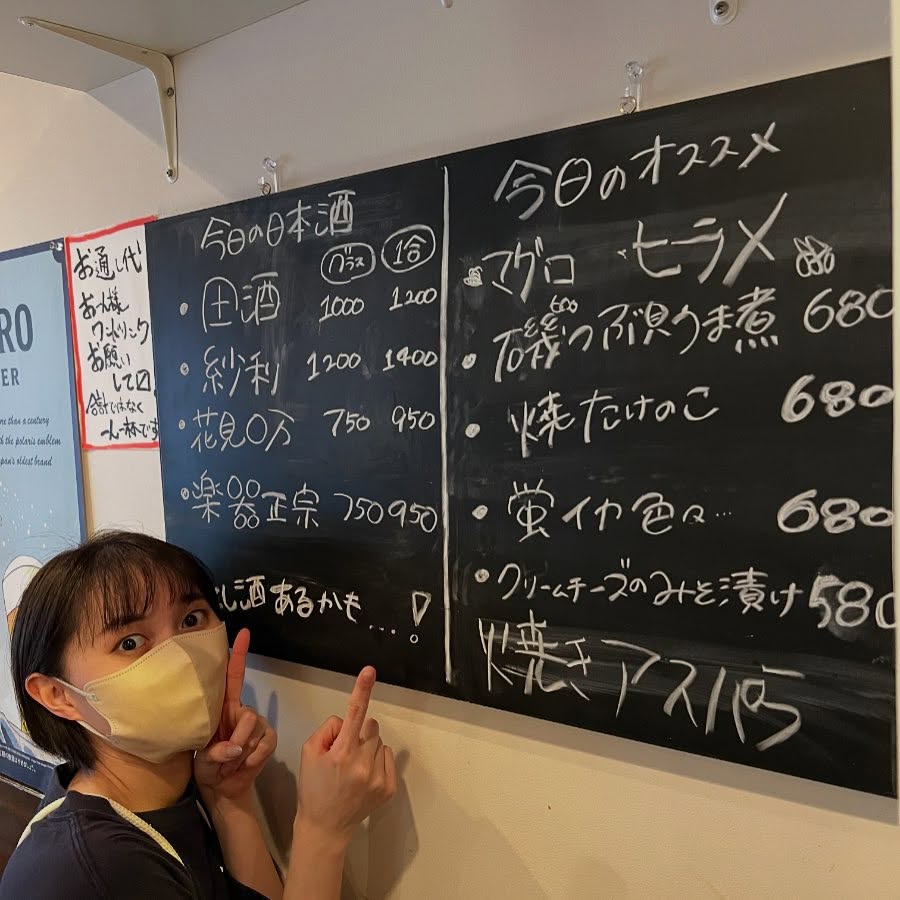 RO
ER
more than a century
d the polaris emblem
pan's oldest brand
お通し代
お一人様
ワンドリンク
お願い
して〼
合計ではなく
一人一杯です
今日の日本酒
グラス 1合
・田酒 1000 1200
・紗利 1200 1400
・花見〇万 750 950
・楽器正宗 750 950
し酒あるかも...!
今日のオススメ
マグロ ヒラメ
600
・磯つぶ貝うま煮 680
・焼たけのこ 680
・蛍イカ色々… 680
・クリームチーズのみそ漬け 580
焼きアスパラ